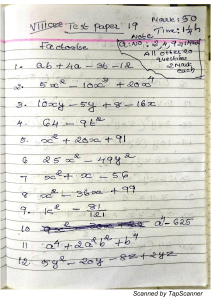 VIII CBSE Test paper 19
Mark: 50
Time: 1½ h
Note
Q.No: 2,4,9,
All other 20
questions
2 Mark
each
Factorise
1. ab + 4a - 3b - 12
2. 5x² - 10x³ + 20x⁴
3. 10xy - 5y + 8 - 16x
4. 64 - 9t²
5. x² + 20x + 91
6 25x² - 49y²
7 x² + x - 56
8 x² - 36x + 99
9. k² - 81/121
10 a⁴ - 625
11 a⁴ + 2a²b² + b⁴
12. 5y² - 20y - 8z + 2yz
Scanned by TapScanner